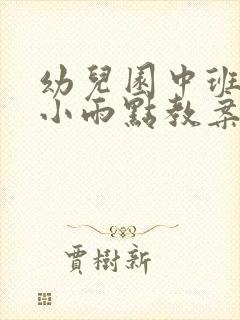 幼兒園中班
小雨點教案
賈樹新